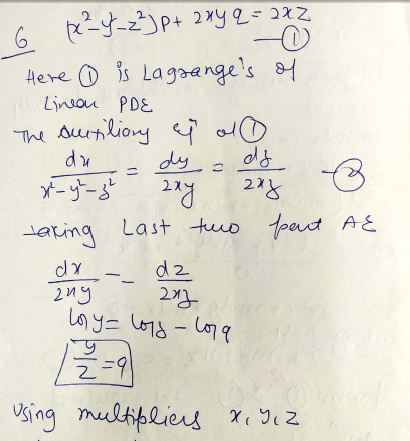 6 (x²-y²-z²)p + 2xy q = 2xz
—①
Here ① is Lagrange's of
Linear PDE
The auxiliary eqⁿ of ①
dx/(x²-y²-z²) = dy/2xy = dz/2xz —②
taking Last two part AE
dx/2xy = dz/2xz
log y = log z - log a
y/z = a
Using multipliers x, y, z